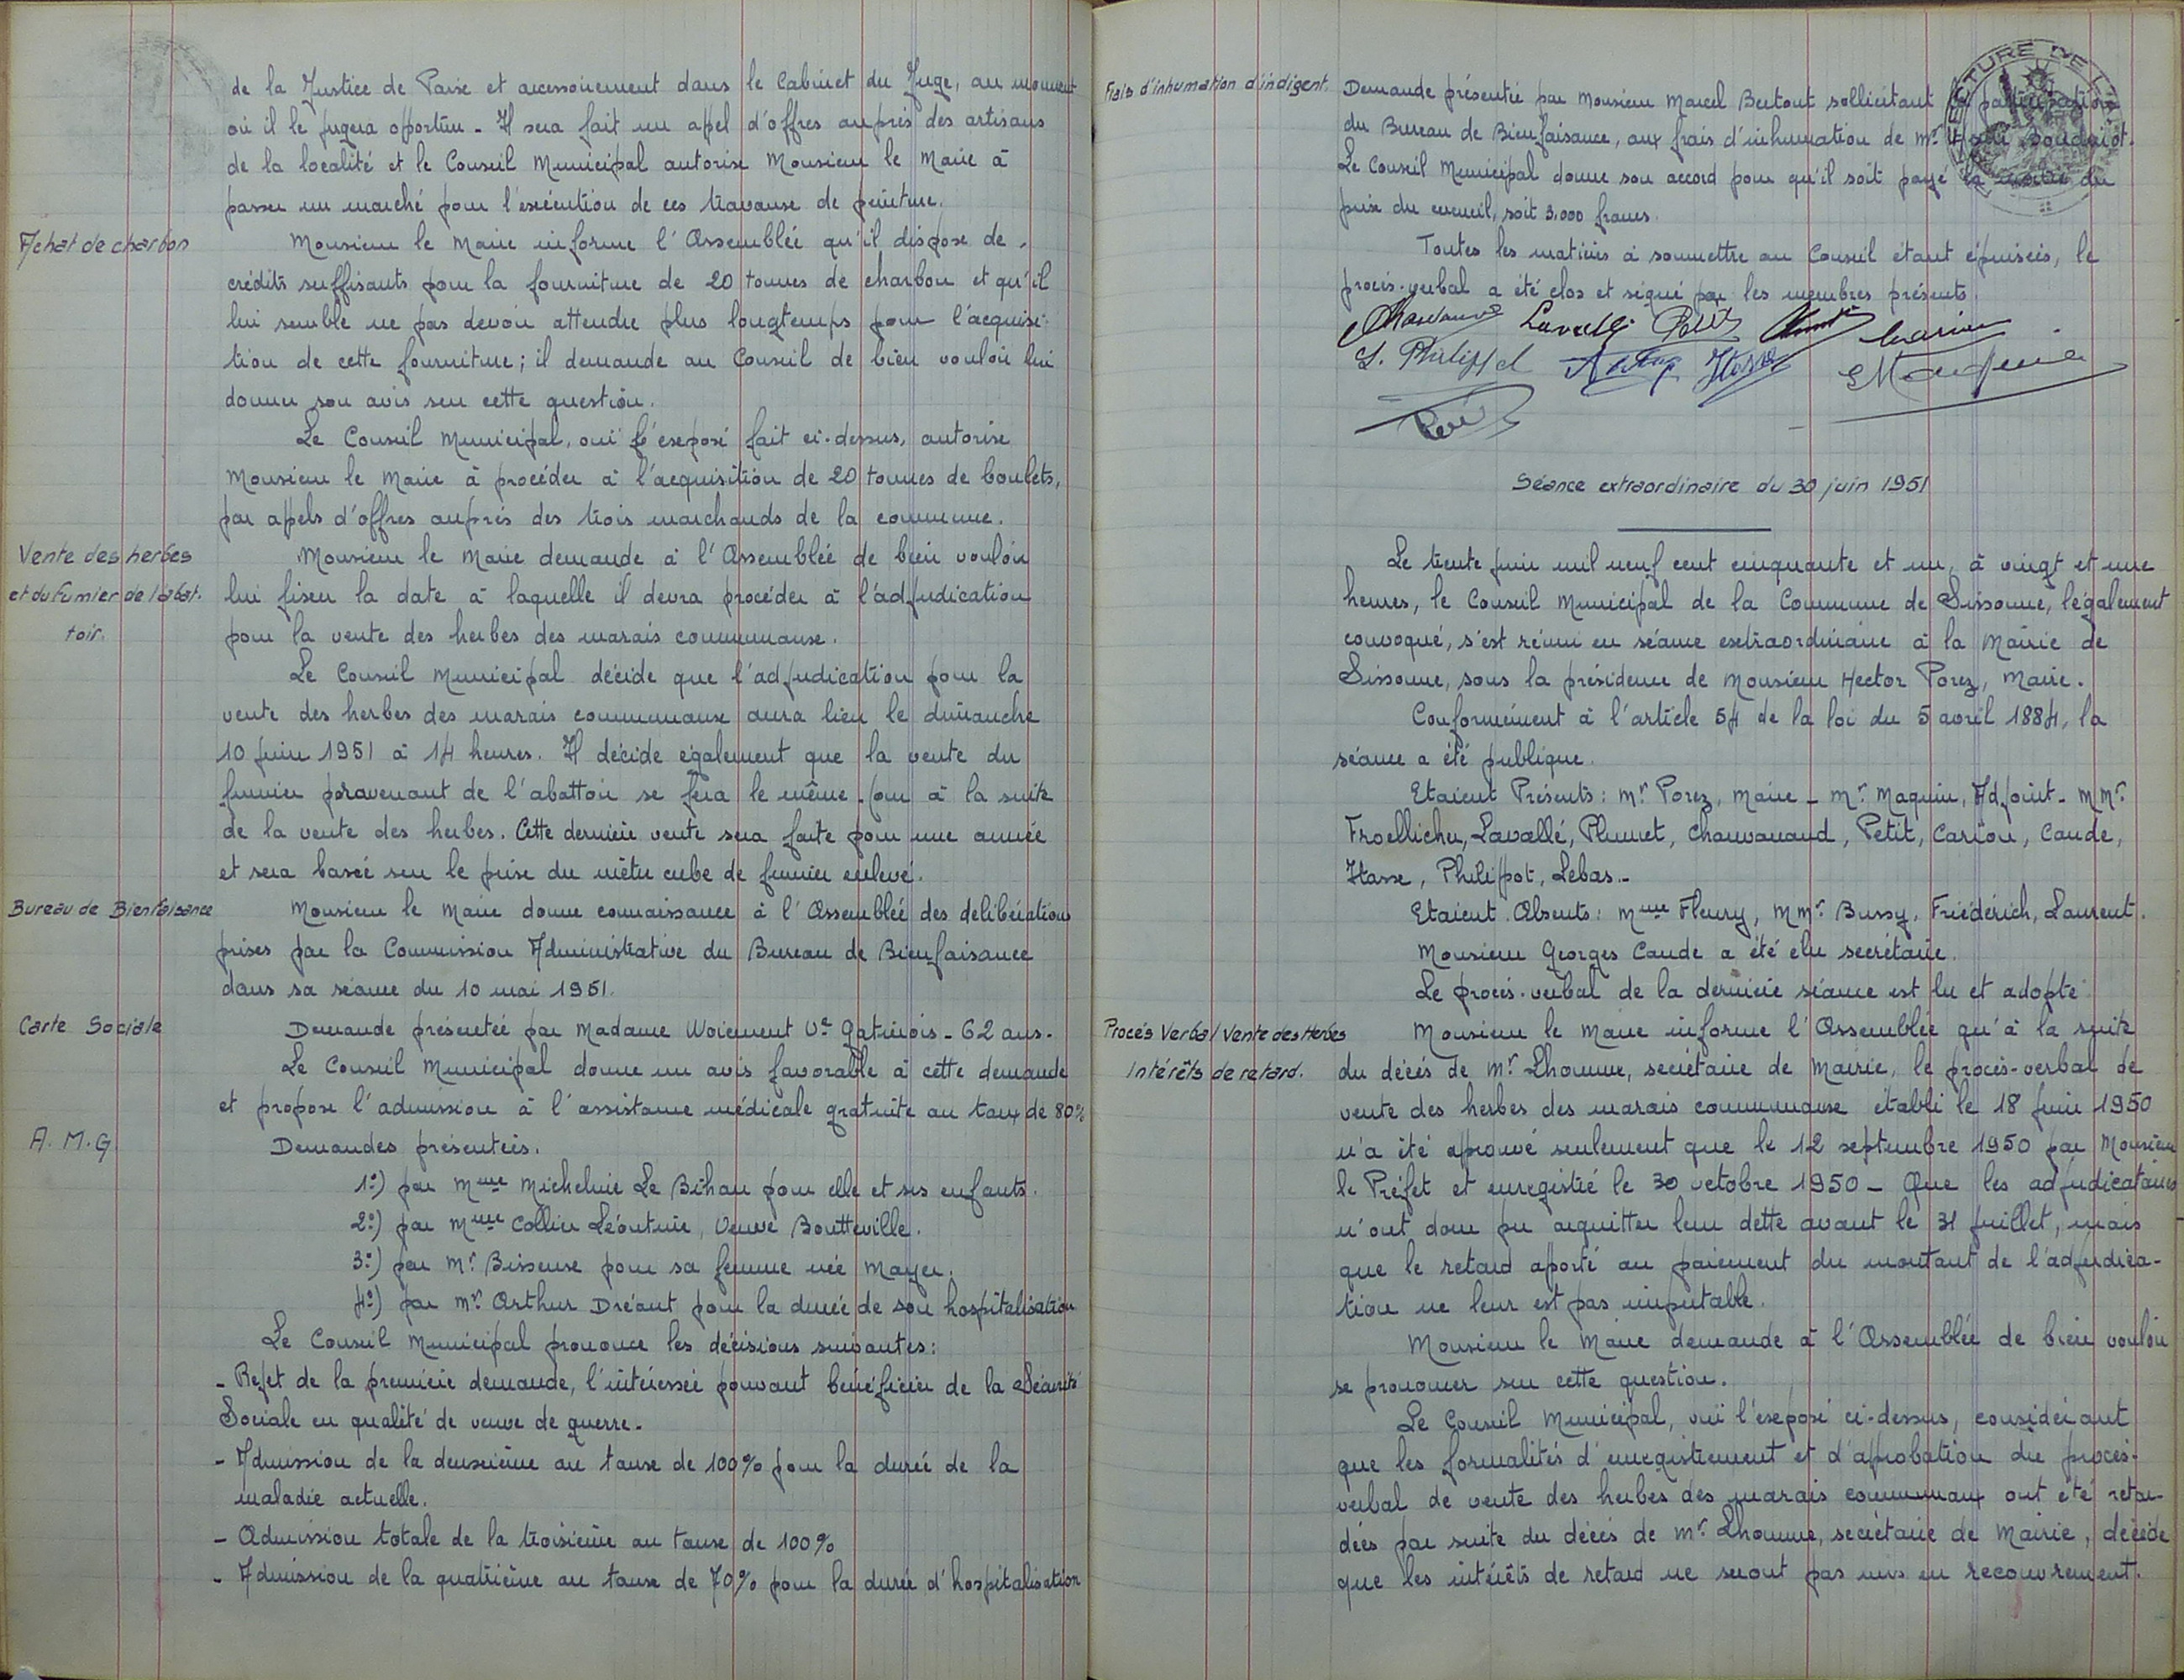 de la Justice de Paix et accessoirement dans le Cabinet du Juge, au moment
où il le jugera oportun - Il sera fait un apel d'offres auprès des artisans
de la localité et le Conseil Municipal autorise Monsieur le Maire à
passer un marché pour l'exécution de ces travaux de peinture.
Achat de charbon
Monsieur le Maire informe l'Assemblée qu'il dispose de
crédits suffisants pour la fourniture de 20 tonnes de charbon et qu'il
lui semble ne pas devoir attendre plus longtemps pour l'acquisi-
tion de cette fourniture; il demande au Conseil de bien vouloir lui
donner son avis sur cette question.
Le Conseil Municipal, ouï l'exposé fait ci-dessus, autorise
Monsieur le Maire à procéder à l'acquisition de 20 tonnes de boulets,
par apels d'offres auprès des trois marchands de la commune.
Vente des herbes
et du fumier de l'abat-
toir.
Monsieur le Maire demande à l'Assemblée de bien vouloir
lui fixer la date à laquelle il devra procéder à l'adjudication
pour la vente des herbes des marais communaux.
Le Conseil Municipal décide que l'adjudication pour la
vente des herbes des marais communaux aura lieu le dimanche
10 juin 1951 à 14 heures. Il décide également que la vente du
fumier proravenant de l'abattoir se fera le même jour à la suite
de la vente des herbes. Cette dernière vente sera faite pour une année
et sera basée sur le prix du mètre cube de fumier enlevé.
Bureau de Bienfaisance
Monsieur le Maire donne connaissance à l'Assemblée des délibérations
prises par la Commission Administrative du Bureau de Bienfaisance
dans sa séance du 10 mai 1951.
Carte Sociale
Demande présentée par Madame Woiement Ve Gatinois - 62 ans.
Le Conseil Municipal donne un avis favorable à cette demande
et propose l'admission à l'assistance médicale gratuite au taux de 80%
A.M.G.
Demandes présentées.
1°) par Mme Micheline Le Bihan pour elle et ses enfants.
2°) par Mme Collin Léontine, Veuve Boutteville.
3°) par Mr Bisseux pour sa femme née Mayer.
4°) par Mr Arthur Dréant pour la durée de son hospitalisation
Le Conseil Municipal prononce les décisions suivantes:
- Rejet de la première demande, l'intéressée pouvant bénéficier de la Sécurité
Sociale en qualité de veuve de guerre.
- Admission de la deuxième au taux de 100% pour la durée de la
maladie actuelle.
- Admission totale de la troisième au taux de 100%
- Admission de la quatrième au taux de 70% pour la durée d'hospitalisation
Frais d'inhumation d'indigent.
Demande présentée par Monsieur Marcel Bertout sollicitant la participation
du Bureau de Bienfaisance, aux frais d'inhumation de Mr
Le Conseil Municipal donne son accord pour qu'il soit payé la moitié du
prix du cercueil, soit 3.000 francs.
Toutes les matières à soumettre au Conseil étant épuisées, le
procès-verbal a été clos et signé par les membres présents.
Lavallé Petit Cariou
L. Philippot
Séance extraordinaire du 30 juin 1951
Le trente juin mil neuf cent cinquante et un, à vingt et une
heures, le Conseil Municipal de la Commune de Sissonne, légalement
convoqué, s'est réuni en séance extraordinaire à la Mairie de
Sissonne, sous la présidence de Monsieur Hector Porez, Maire.
Conformément à l'article 54 de la loi du 5 avril 1884, la
séance a été publique.
Etaient Présents: Mr Porez, Maire - Mr Maquin, Adjoint - MMr
Froellicher, Lavallé, Plumet, Chauvanaud, Petit, Cariou, Caude,
Hasse, Philippot, Lebas.-
Etaient Absents: Mme Fleury, MMr Bussy, Friédérich, Laurent.
Monsieur Georges Caude a été élu secrétaire.
Le procès-verbal de la dernière séance est lu et adopté
Procès Verbal Vente des Herbes
Intérêts de retard.
Monsieur le Maire informe l'Assemblée qu'à la suite
du décès de Mr Lhomme, secrétaire de Mairie, le procès-verbal de
vente des herbes des marais communaux établi le 18 juin 1950
n'a été aprouvé seulement que le 12 septembre 1950 par Monsieur
le Préfet et enregistré le 30 octobre 1950 - Que les adjudicataires
n'ont donc pu acquitter leur dette avant le 31 juillet, mais
que le retard aporté au paiement du montant de l'adjudica-
tion ne leur est pas imputable.
Monsieur le Maire demande à l'Assemblée de bien vouloir
se prononcer sur cette question.
Le Conseil Municipal, ouï l'exposé ci-dessus, considérant
que les formalités d'enregistrement et d'aprobation du procès-
verbal de vente des herbes des marais communaux ont été retar-
dées par suite du décès de Mr Lhomme, secrétaire de Mairie, décide
que les intérêts de retard ne seront pas mis en recouvrement.